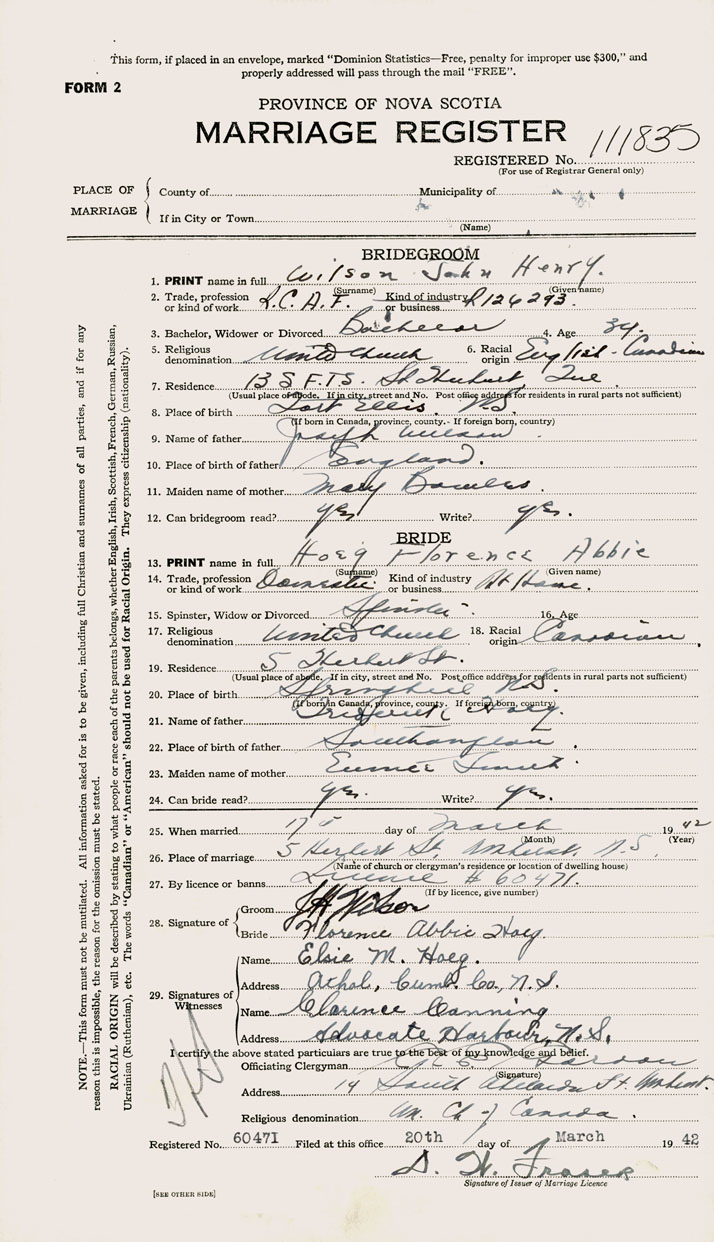 This form, if placed in an envelope, marked "Dominion Statistics—Free, penalty for improper use $300," and
properly addressed will pass through the mail "FREE".
FORM 2
PROVINCE OF NOVA SCOTIA
MARRIAGE REGISTER
REGISTERED No. 111835
(For use of Registrar General only)
PLACE OF MARRIAGE
County of Municipality of
If in City or Town
(Name)
BRIDEGROOM
1. PRINT name in full Wilson John Henry.
(Surname) (Given name)
2. Trade, profession or kind of work R.C.A.F. Kind of industry or business R126293.
3. Bachelor, Widower or Divorced Bachelor 4. Age 34.
5. Religious denomination United Church 6. Racial origin English-Canadian
7. Residence 13 S.F.T.S. St Hubert Que
(Usual place of abode. If in city, street and No. Post office address for residents in rural parts not sufficient)
8. Place of birth Fort Ellis. N.S.
(If born in Canada, province, county. - If foreign born, country)
9. Name of father Joseph Wilson.
10. Place of birth of father England.
11. Maiden name of mother Mary Bowles.
12. Can bridegroom read? yes. Write? yes.
BRIDE
13. PRINT name in full Hoeg Florence Abbie
(Surname) (Given name)
14. Trade, profession or kind of work Domestic Kind of industry or business At Home.
15. Spinster, Widow or Divorced Spinster 16. Age
17. Religious denomination United Church 18. Racial origin Canadian.
19. Residence 5 Herbert St.
(Usual place of abode. If in city, street and No. Post office address for residents in rural parts not sufficient)
20. Place of birth Springhill N.S.
(If born in Canada, province, county. If foreign born, country)
21. Name of father Frederick Hoeg.
22. Place of birth of father Southampton.
23. Maiden name of mother Smith.
24. Can bride read? yes. Write? yes.
25. When married 17 day of March 1942
(Month) (Year)
26. Place of marriage 5 Herbert St. Amherst, N.S.
(Name of church or clergyman's residence or location of dwelling house)
27. By licence or banns License # 60471.
(If by licence, give number)
28. Signature of
Groom J H Wilson
Bride Florence Abbie Hoeg.
29. Signatures of Witnesses
Name Elsie M. Hoeg.
Address Athol, Cumb. Co., N.S.
Name Clarence Canning
Address Advocate Harbour, N.S.
I certify the above stated particulars are true to the best of my knowledge and belief.
Officiating Clergyman
(Signature)
Address 14 South Adelaide St. Amherst.
Religious denomination Un. Ch of Canada.
Registered No. 60471 Filed at this office 20th day of March 1942
D. W. Fraser
Signature of Issuer of Marriage Licence
[SEE OTHER SIDE]
NOTE.—This form must not be mutilated. All information asked for is to be given, including full Christian and surnames of all parties, and if for any
reason this is impossible, the reason for the omission must be stated.
RACIAL ORIGIN will be described by stating to what people or race each of the parents belongs, whether English, Irish, Scottish, French, German, Russian,
Ukrainian (Ruthenian), etc. The words "Canadian" or "American" should not be used for Racial Origin. They express citizenship (nationality).